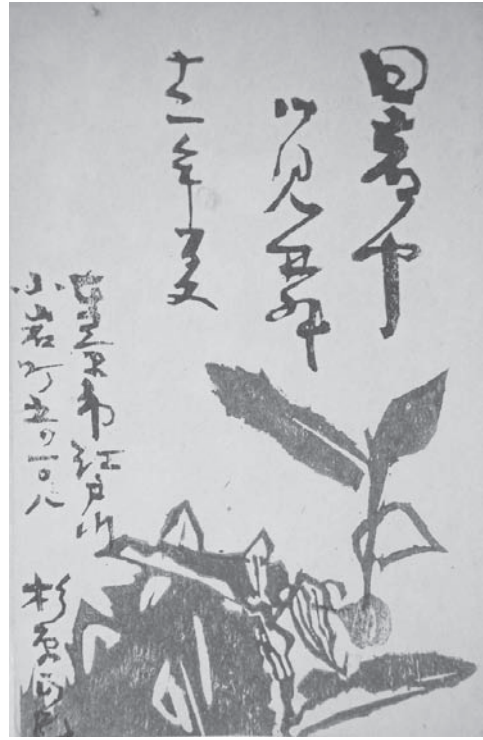 暑中
御見舞
十二年夏
東京市江戸川
小岩町五ノ一〇八
杉原